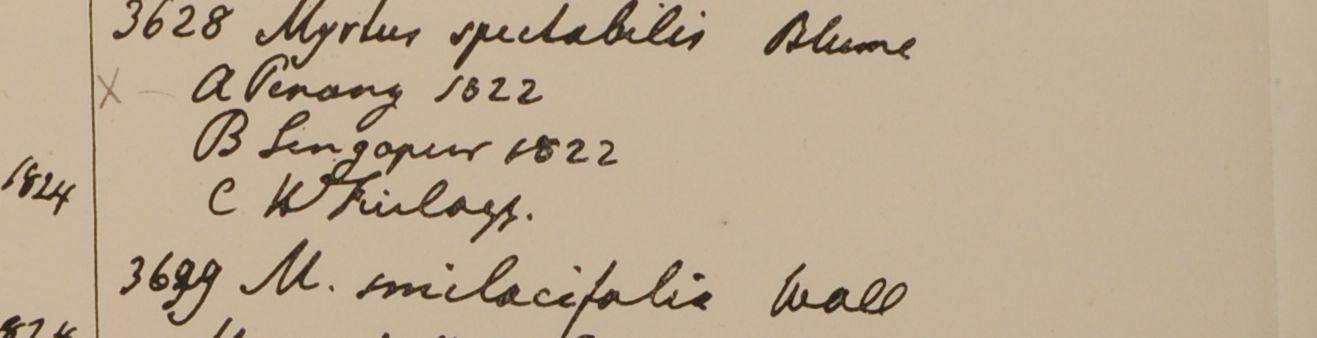 3628 Myrtus spectabilis Blume
X – A Penang 1822
B Singapur 1822
1824 C Hb Finlays.
M. smilacifolia Wall